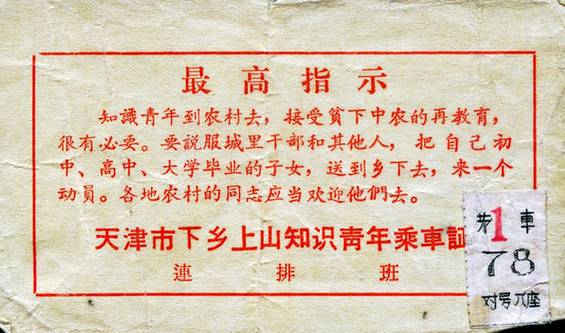 最高指示
知識青年到农村去，接受貧下中农的再教育，
很有必要。要説服城里干部和其他人，把自己初
中、高中、大学毕业的子女，送到乡下去，来一个
动員。各地农村的同志应当欢迎他們去。
天津市下乡上山知识青年乘車証
連 排 班
第1車
78
对号入座